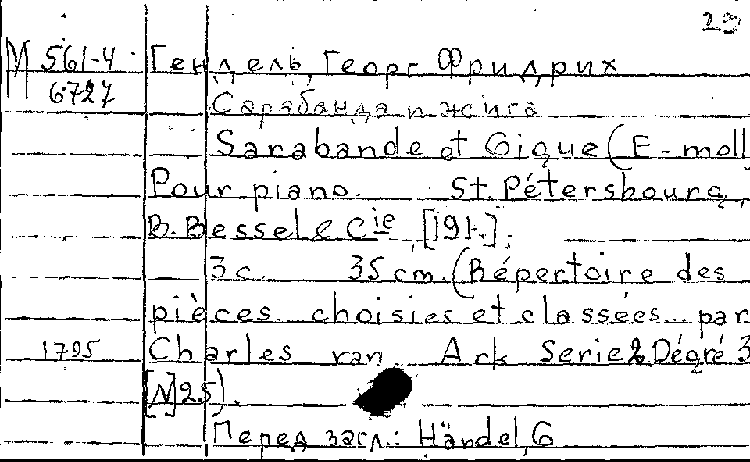 29
М 561-4 Гендель, Георг Фридрих
6727 Сарабанда и жига
Sarabande et Gigue (E-moll
Pour piano. St. Pétersbourg,
B. Bessel & Cie, [191-].
3 с. 35 cm. (Répertoire des
pièces choisies et classées... par
1795 Charles van Ark Serie 2 Dégré 3
[N 25).
Перед загл.: Händel, G